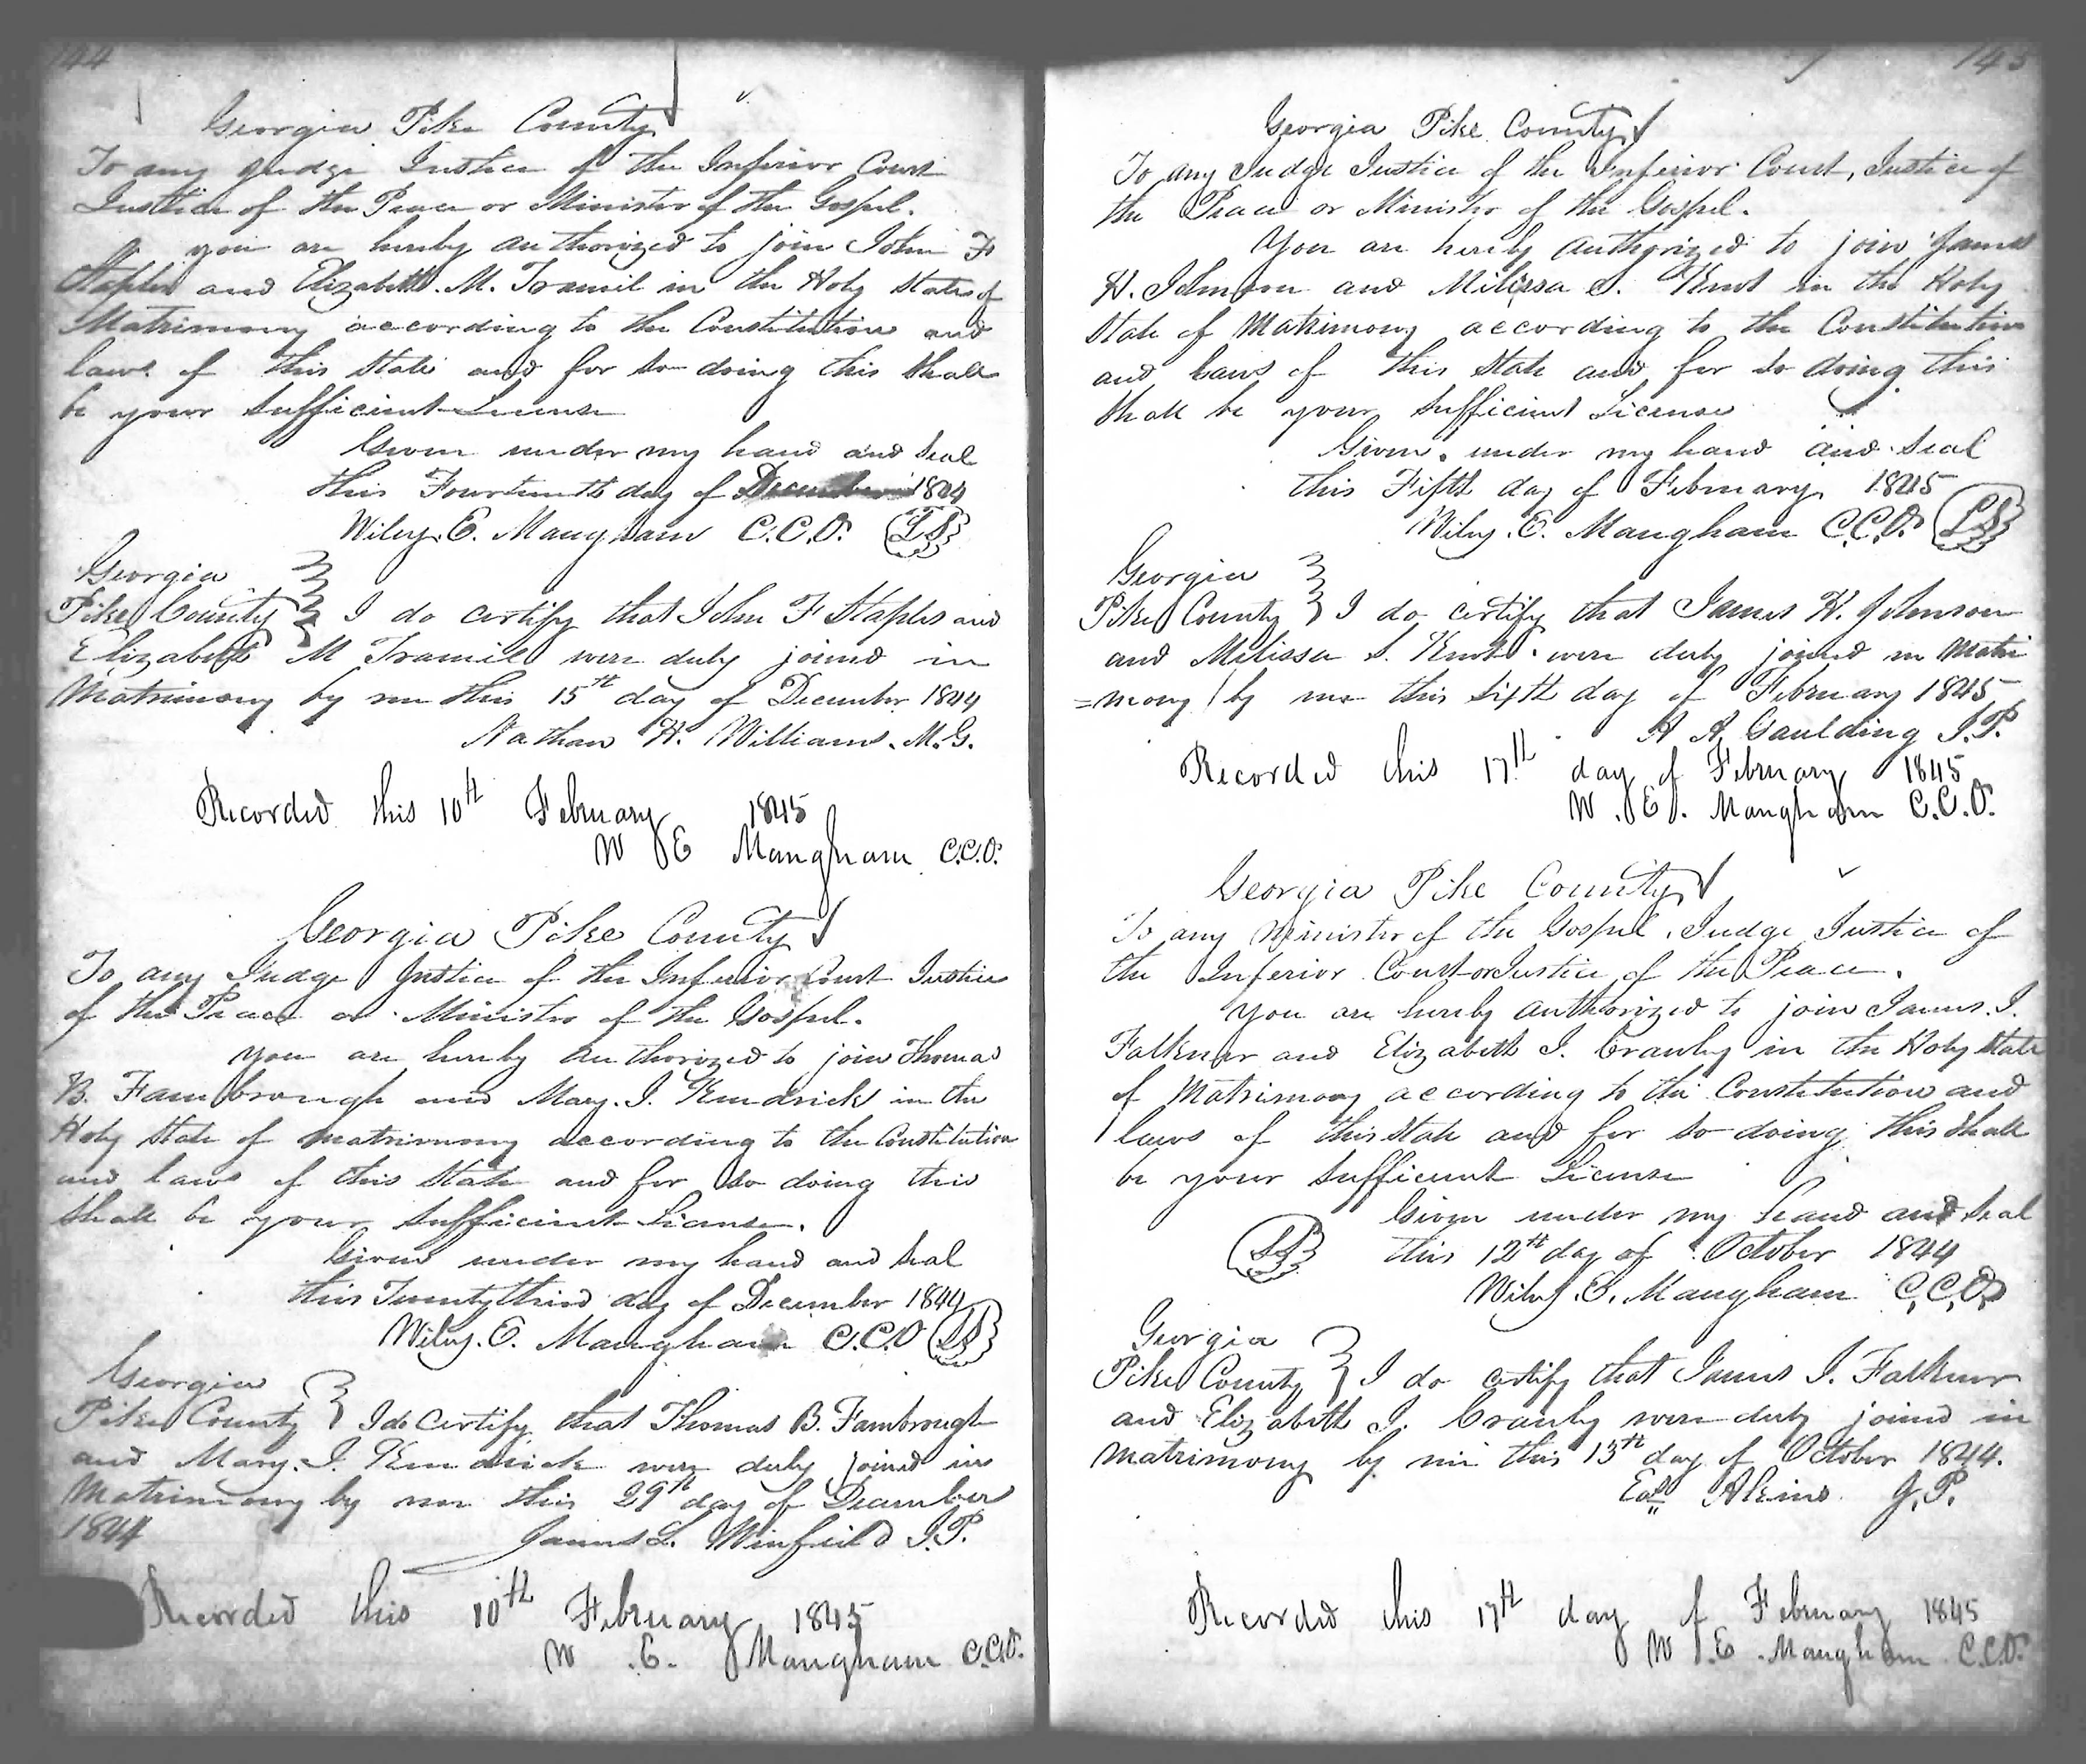 144
Georgia Pike County
To any Judge Justice of the Inferior Court
Justice of the Peace or Minister of the Gospel.
you are hereby authorized to join John F
Staples and Elizabeth. M. Tramil in the Holy State of
Matrimony according to the Constitution and
laws of this State and for so doing this shall
be your sufficient License
Given under my hand and seal
this Fourteenth day of December 1844
Wiley. E. Mangham C.C.O. LS
Georgia
Pike County I do certify that John F Staples and
Elizabeth M Tramil were duly joined in
Matrimony by me this 15th day of December 1844
Nathan H. Williams. M.G.
Recorded this 10th February 1845
W E Mangham C.C.O.
Georgia Pike County
To any Judge Justice of the Inferior Court Justice
of the Peace or Minister of the Gospel.
you are hereby authorized to join Thomas
B. Fambrough and Mary. J. Kendrick in the
Holy State of matrimony according to the Constitution
and laws of this State and for so doing this
shall be your sufficient License.
Given under my hand and seal
this Twenty third day of December 1844
Wiley. E. Mangham C.C.O LS
Georgia
Pike County I do certify that Thomas B. Fambrough
and Mary. J. Kendrick were duly joined in
Matrimony by me this 29th day of December
1844
James L. Winfield J.P.
Recorded this 10th February 1845
W. E. Mangham C.C.O.
145
Georgia Pike County
To any Judge Justice of the Inferior Court, Justice of
the Peace or Minister of the Gospel.
You are hereby authorized to join James
H. Johnson and Milissa S. Kent in the Holy
State of Matrimony according to the Constitution
and laws of this State and for so doing this
shall be your sufficient License
Given under my hand and seal
this Fifth day of February 1845
Wiley. E. Mangham C.C.O. LS
Georgia
Pike County I do certify that James H. Johnson
and Milissa S. Kent were duly joined in Matri
=mony by me this sixth day of February 1845
A A. Gaulding J.P.
Recorded this 17th day of February 1845
W. E. Mangham C.C.O.
Georgia Pike County
To any Minister of the Gospel, Judge Justice of
the Inferior Court or Justice of the Peace.
You are hereby authorized to join James. J.
Falkner and Elizabeth J. Cranby in the Holy State
of Matrimony according to the Constitution and
laws of this State and for so doing this shall
be your sufficient License
Given under my hand and seal
LS this 12th day of October 1844
Wiley. E. Mangham C.C.O.
Georgia
Pike County I do certify that James J. Falkner
and Elizabeth J. Cranby were duly joined in
matrimony by me this 13th day of October 1844.
Akins J.P.
Recorded this 17th day of February 1845
W. E. Mangham C.C.O.